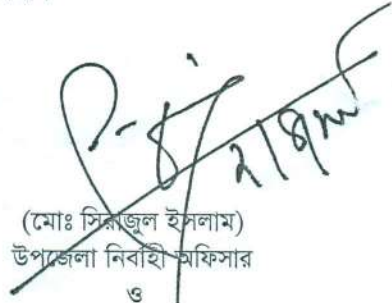 (মোঃ সিরাজুল ইসলাম)
উপজেলা নির্বাহী অফিসার
ও